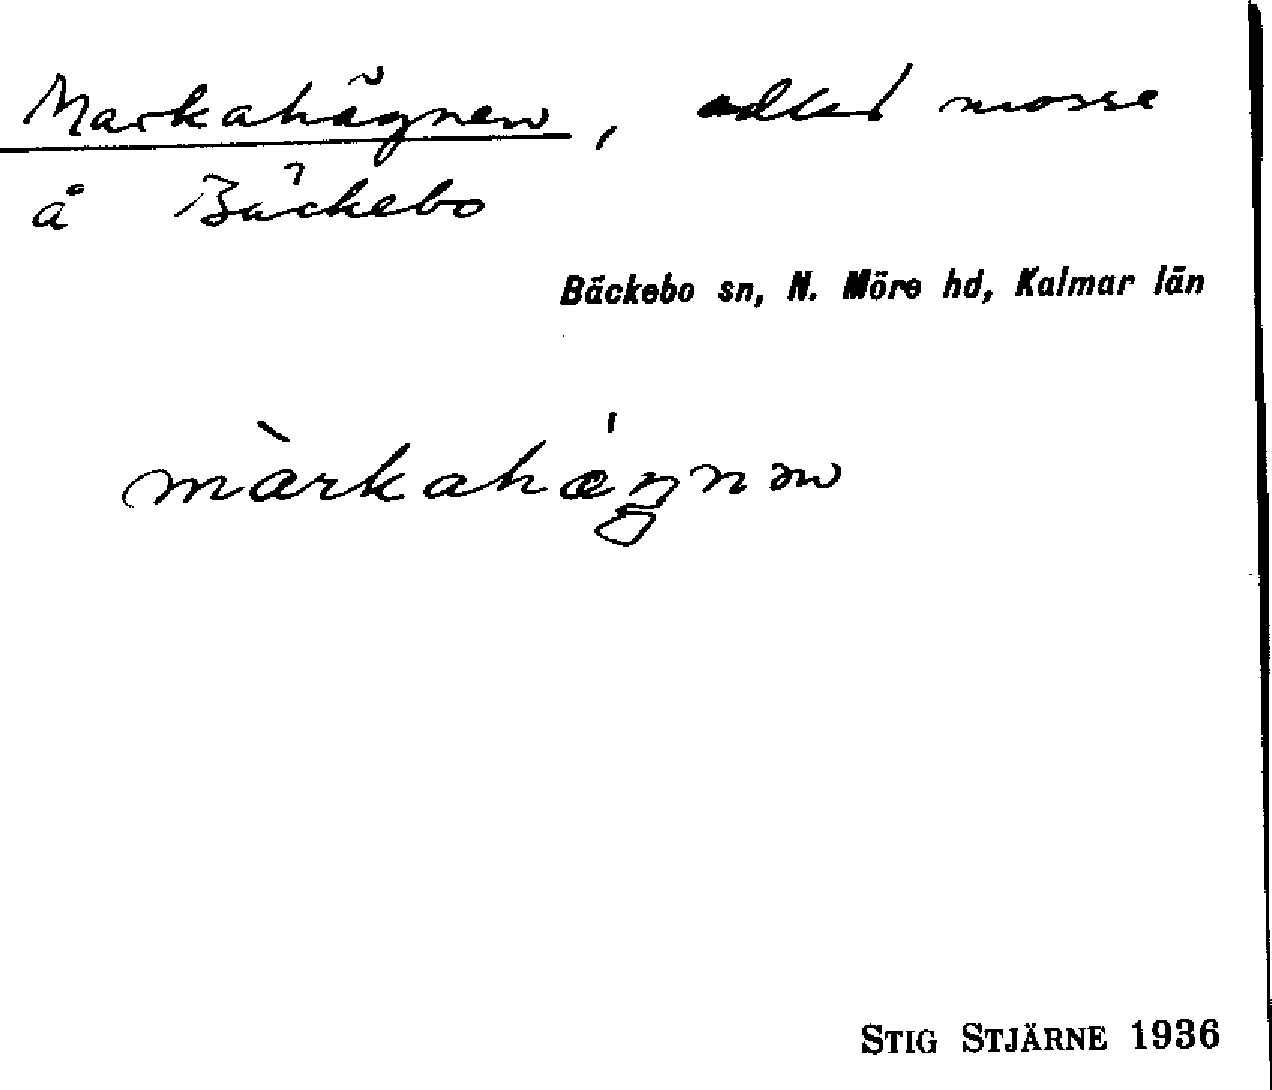 Markahägnen, odlad mosse
å Bäckebo
Bäckebo sn, N. Möre hd, Kalmar län
màrkahǽŋnən
STIG STJÄRNE 1936